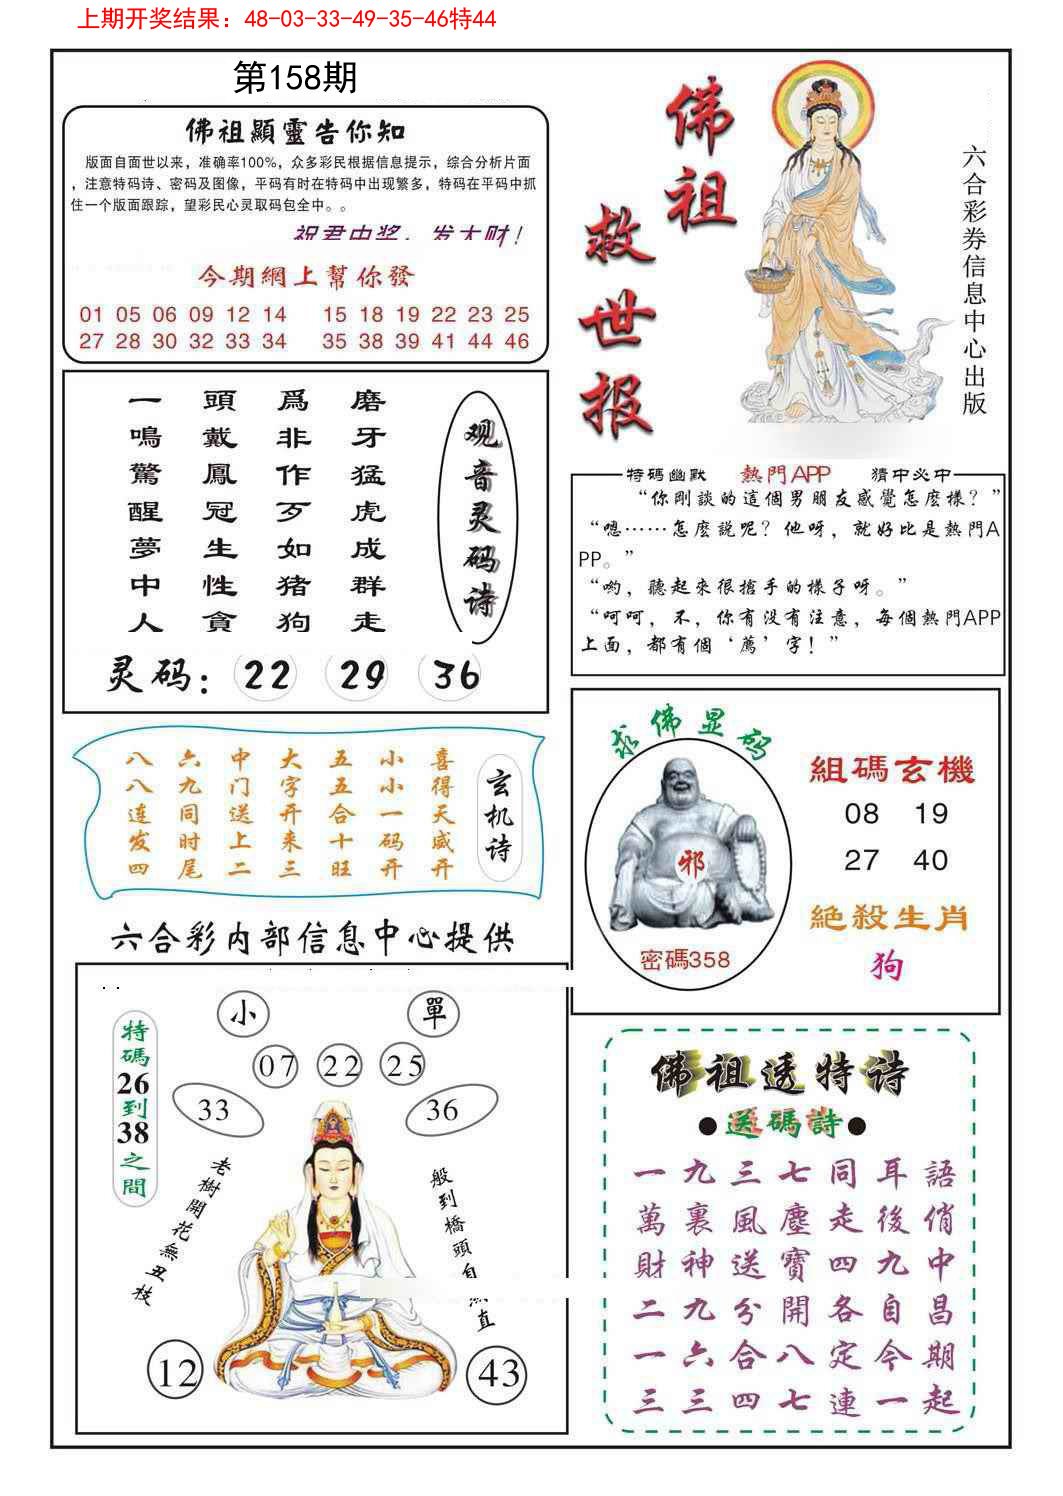 上期开奖结果：48-03-33-49-35-46特44
第158期
佛祖顯靈告你知
版面自面世以来，准确率100%，众多彩民根据信息提示，综合分析片面
，注意特码诗、密码及图像，平码有时在特码中出现繁多，特码在平码中抓
住一个版面跟踪，望彩民心灵取码包全中。。
祝君中奖，发大财！
今期網上幫你發
01 05 06 09 12 14 15 18 19 22 23 25
27 28 30 32 33 34 35 38 39 41 44 46
佛祖
救世报
六合彩券信息中心出版
磨牙猛虎成群走
爲非作歹如猪狗
頭戴鳳冠生性貪
一鳴驚醒夢中人
观音灵码诗
灵码：22 29 36
特碼幽默 熱門APP 猜中必中
“你剛談的這個男朋友感覺怎麽樣？”
“嗯……怎麽說呢？他呀，就好比是熱門A
PP。”
“哟，聽起來很搶手的樣子呀。”
“呵呵，不，你有没有注意，每個熱門APP
上面，都有個‘薦’字！”
玄机诗
喜得天威开
小小一码开
五五合十旺
大字开来三
中门送上二
六九同时尾
八八连发四
求佛显码
邪
密碼358
組碼玄機
08 19
27 40
絕殺生肖
狗
六合彩内部信息中心提供
小
單
07 22 25
33
36
特碼26到38之間
老樹開花無丑枝
般到橋頭自 直
12
43
佛祖透特诗
●送碼詩●
一九三七同耳語
萬裏風塵走後俏
財神送寶四九中
二九分開各自昌
一六合八定今期
三三四七連一起